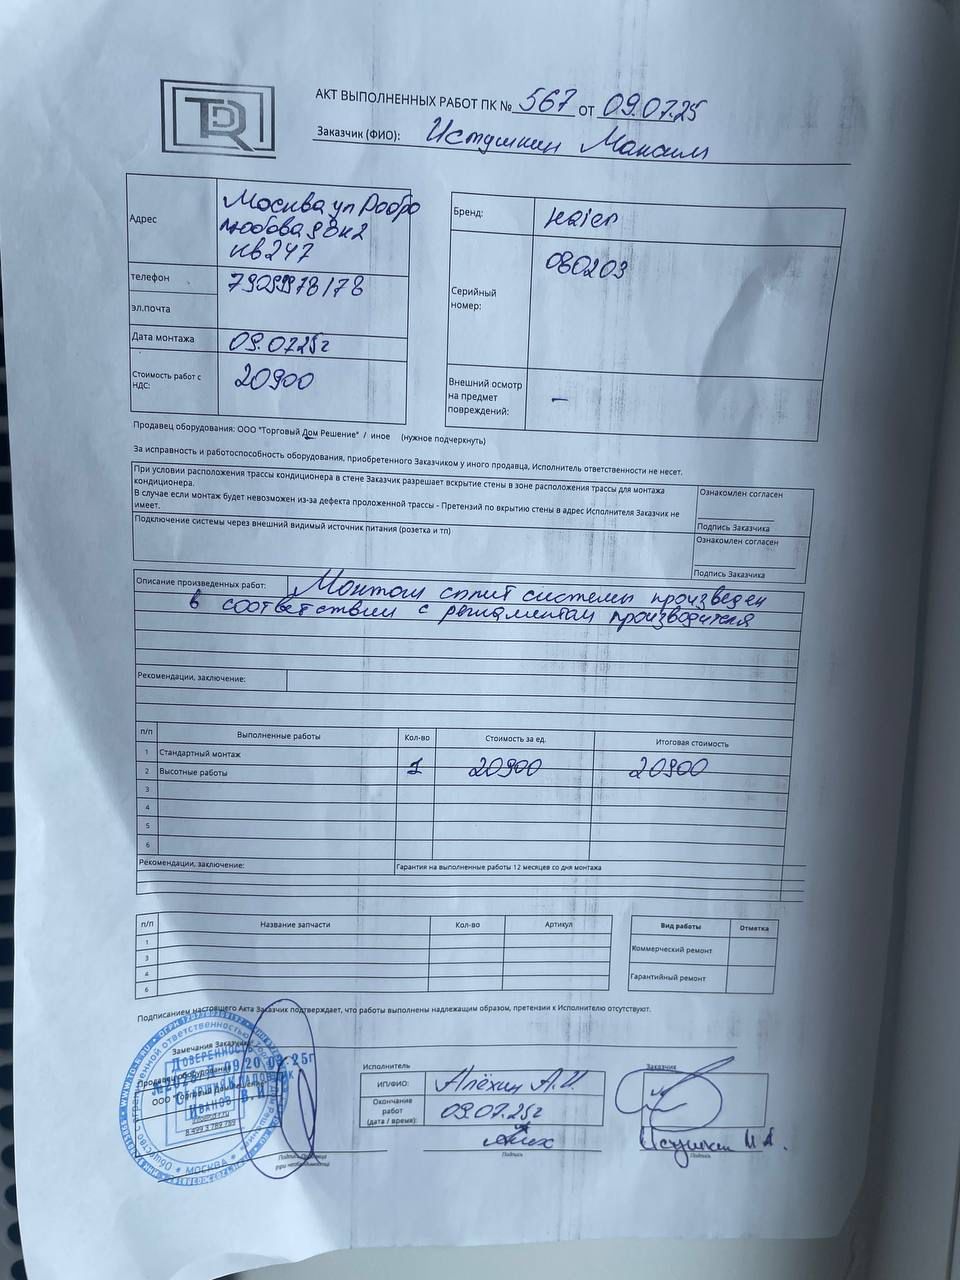 TDR
АКТ ВЫПОЛНЕННЫХ РАБОТ ПК № 567 от 09.07.25
Заказчик (ФИО): Истушкин Максим
Адрес
Москва ул Добро
любова 8 к2
кв 247
телефон
эл.почта
Дата монтажа 09.0725г
Стоимость работ с НДС: 20900
Бренд: Haier
Серийный номер: 080203
Внешний осмотр на предмет повреждений: –
Продавец оборудования: ООО "Торговый Дом Решение" / иное (нужное подчеркнуть)
За исправность и работоспособность оборудования, приобретенного Заказчиком у иного продавца, Исполнитель ответственности не несет.
При условии расположения трассы кондиционера в стене Заказчик разрешает вскрытие стены в зоне расположения трассы для монтажа
кондиционера.
В случае если монтаж будет невозможен из-за дефекта проложенной трассы - Претензий по вкрытию стены в адрес Исполнителя Заказчик не
имеет.
Ознакомлен согласен
Подпись Заказчика
Подключение системы через внешний видимый источник питания (розетка и тп)
Ознакомлен согласен
Подпись Заказчика
Описание произведенных работ: Монтаж сплит системы произведен
в соответствии с регламентом производителя
Рекомендации, заключение:
п/п Выполненные работы Кол-во Стоимость за ед. Итоговая стоимость
1 Стандартный монтаж
2 Высотные работы 1 20900 20900
3
4
5
6
Рекомендации, заключение: Гарантия на выполненные работы 12 месяцев со дня монтажа
п/п Название запчасти Кол-во Артикул
1
3
4
6
Вид работы Отметка
Коммерческий ремонт
Гарантийный ремонт
Подписанием настоящего Акта Заказчик подтверждает, что работы выполнены надлежащим образом, претензии к Исполнителю отсутствуют.
Замечания Заказчика
Продавец оборудования
ООО "Торговый Дом Решение"
8 499 3 789 789
ДОВЕРЕННОСТЬ
ИВАНОВ В.И
МОСКВА
Подпись Продавца
(при необходимости)
Исполнитель
ИП/ФИО: Алёхин А.И
Окончание работ (дата / время): 09.07.25г
Алех
Подпись
Заказчик
Истушкин М.А.
Подпись